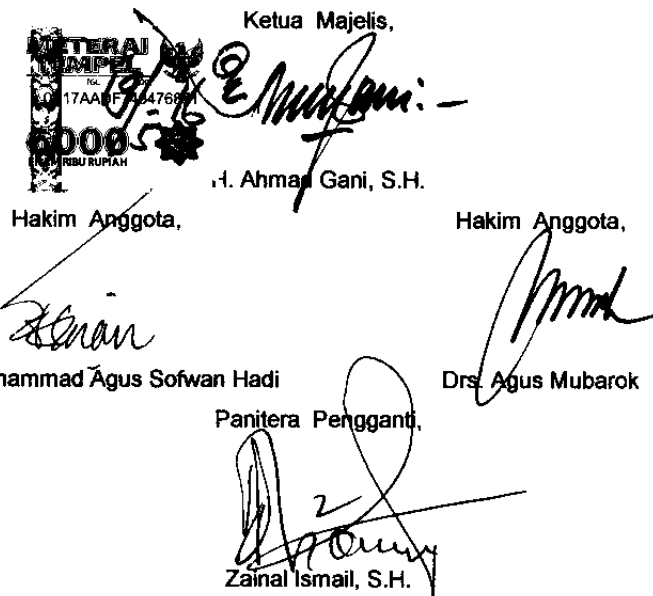 Ketua Majelis,
METERAI
TEMPEL
TGL
6000
RIBU RUPIAH
H. Ahmad Gani, S.H.
Hakim Anggota,
Hakim Anggota,
Agus Sofwan Hadi
Drs. Agus Mubarok
Panitera Pengganti,
Zainal Ismail, S.H.